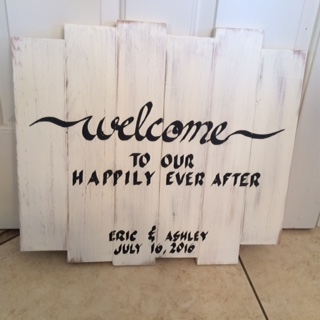 welcome
TO OUR
HAPPILY EVER AFTER
ERIC & ASHLEY
JULY 16, 2016